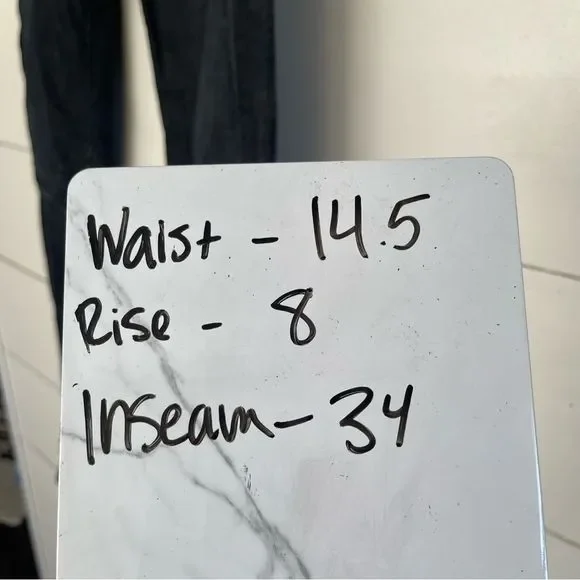 Waist - 14.5
Rise - 8
Inseam - 34